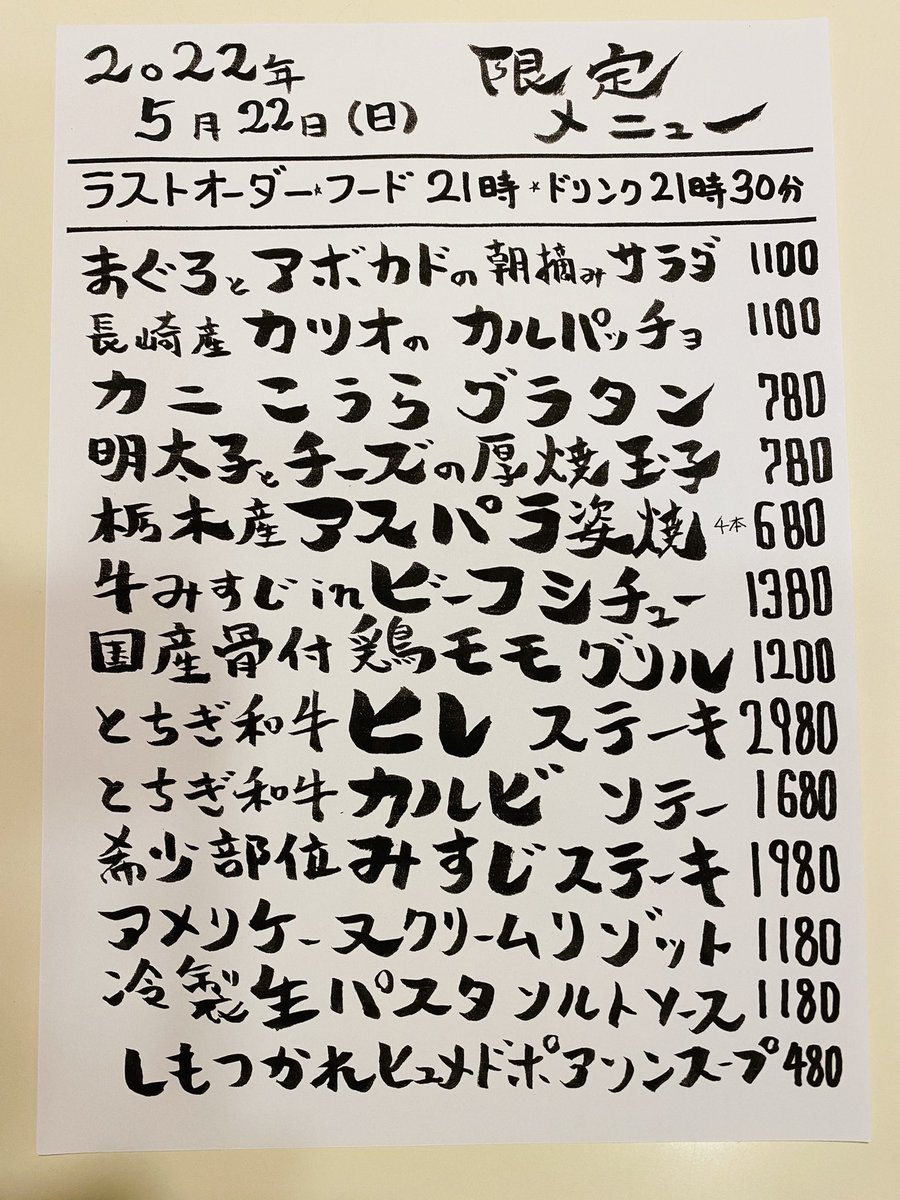 2022年
5月22日(日)
限定
メニュー
ラストオーダー★フード 21時★ドリンク21時30分
まぐろとアボカドの朝摘みサラダ 1100
長崎産カツオのカルパッチョ 1100
カニこうらグラタン 780
明太子とチーズの厚焼玉子 780
栃木産アスパラ姿焼 4本 680
牛みすじinビーフシチュー 1380
国産骨付鶏モモグリル 1200
とちぎ和牛ヒレステーキ 2980
とちぎ和牛カルビソテー 1680
希少部位みすじステーキ 1980
アメリケーヌクリームリゾット 1180
冷製生パスタソルトソース 1180
しもつかれヒュメドポアソンスープ 480